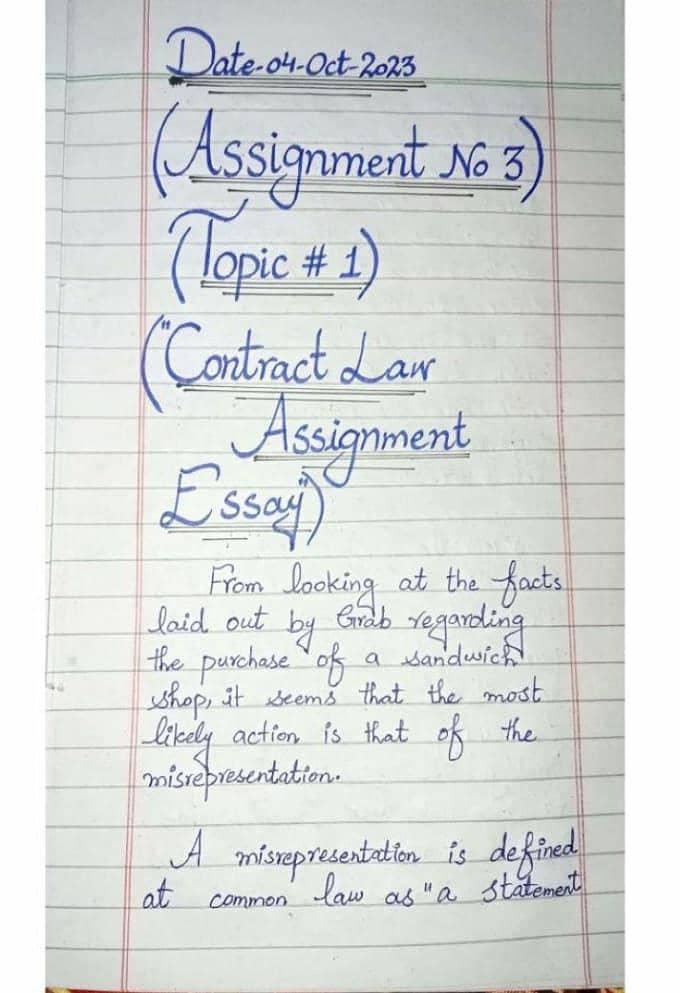 Date-04-Oct-2023
(Assignment No 3)
(Topic # 1)
("Contract Law
Assignment
Essay")
From looking at the facts
laid out by Grab regarding
the purchase of a sandwich
shop, it seems that the most
likely action is that of the
misrepresentation.
A misrepresentation is defined
at common law as "a statement